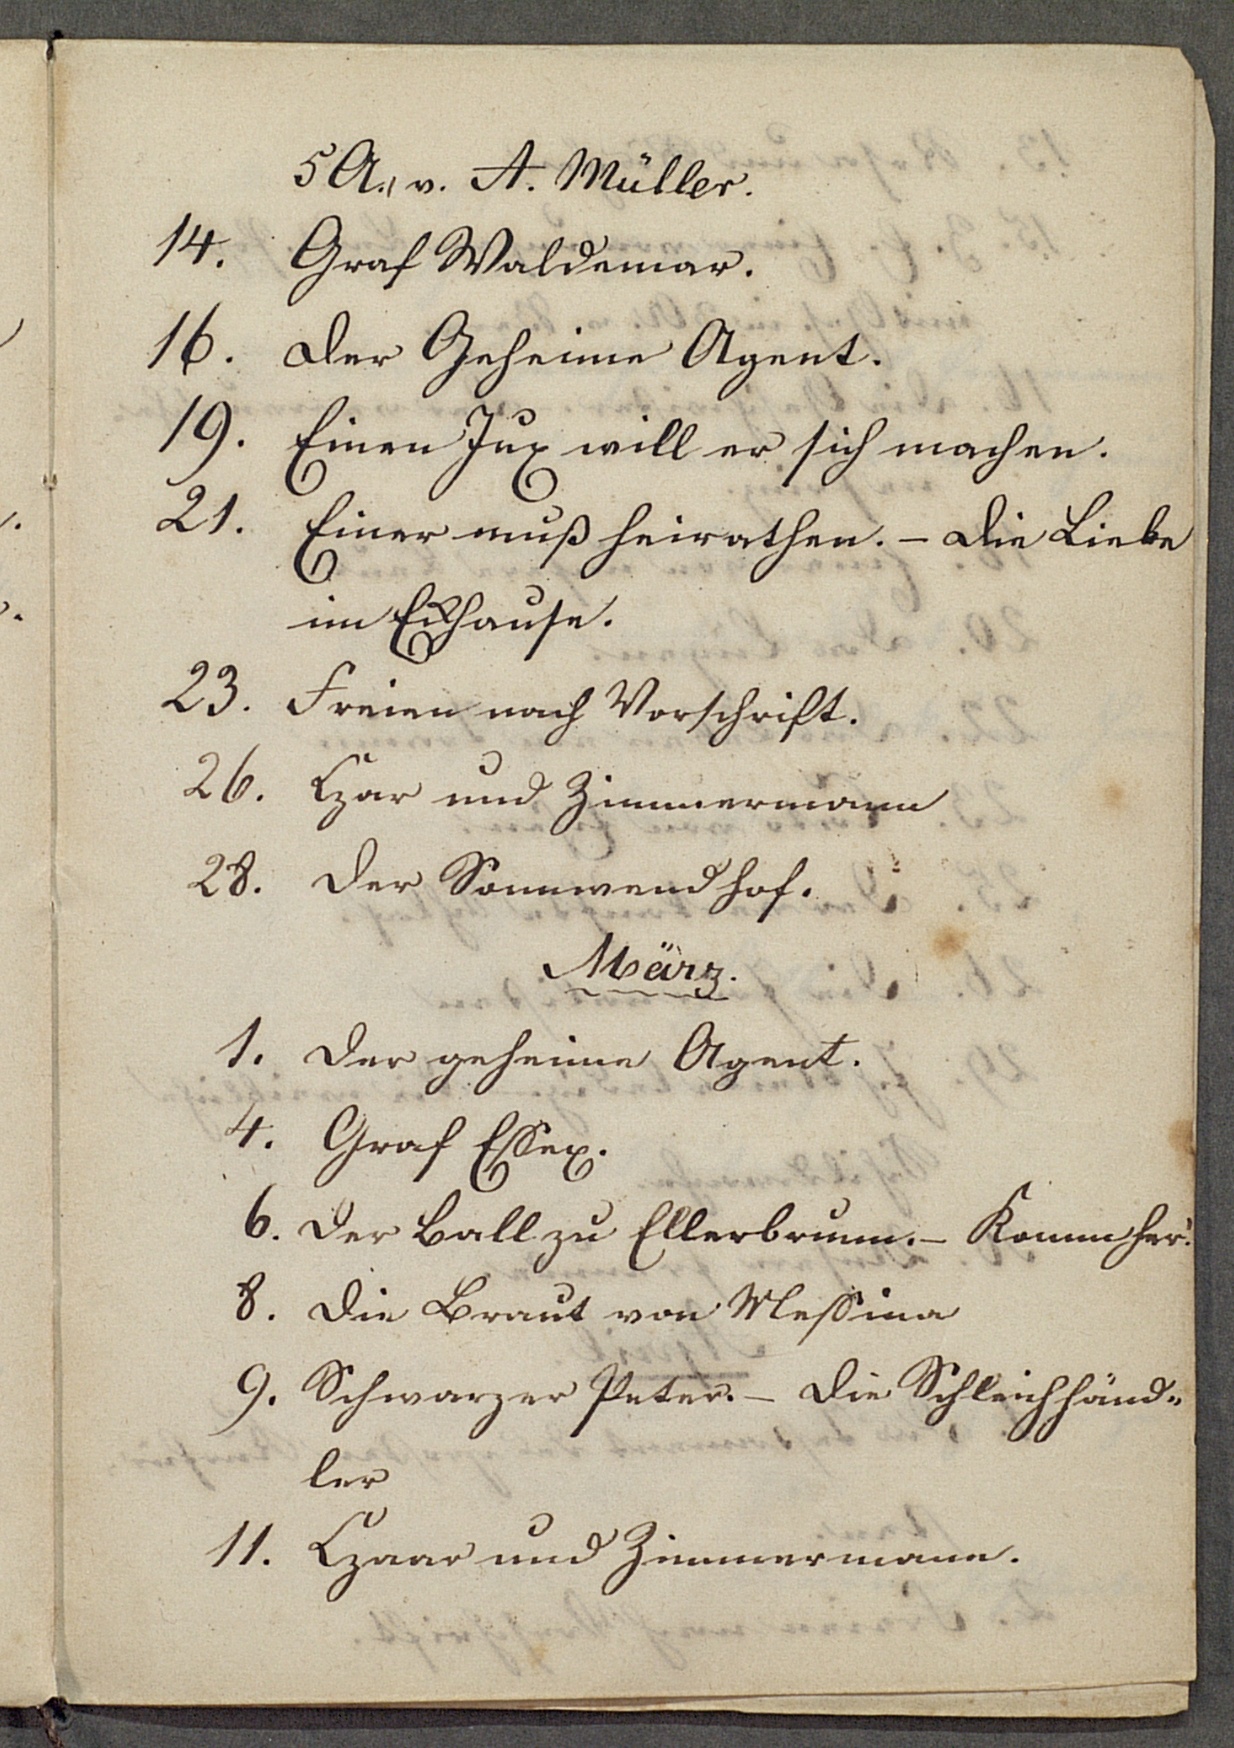 5 A., v. A. Müller.
14. Graf Waldemar.
16. Der Geheime Agent.
19. Einen Jux will er sich machen.
21. Einer muß heirathen. – Die Liebe
im Eckhause.
23. Freien nach Vorschrift.
26. Czar und Zimmermann
28. Der Sonnwendhof.
März.
1. Der geheime Agent.
4. Graf Essex.
6. Der Ball zu Ellerbrunn. – Komm her!
8. Die Braut von Messina
9. Schwarzer Peter. – Die Schleichhänd-
ler
11. Czaar und Zimmermann.